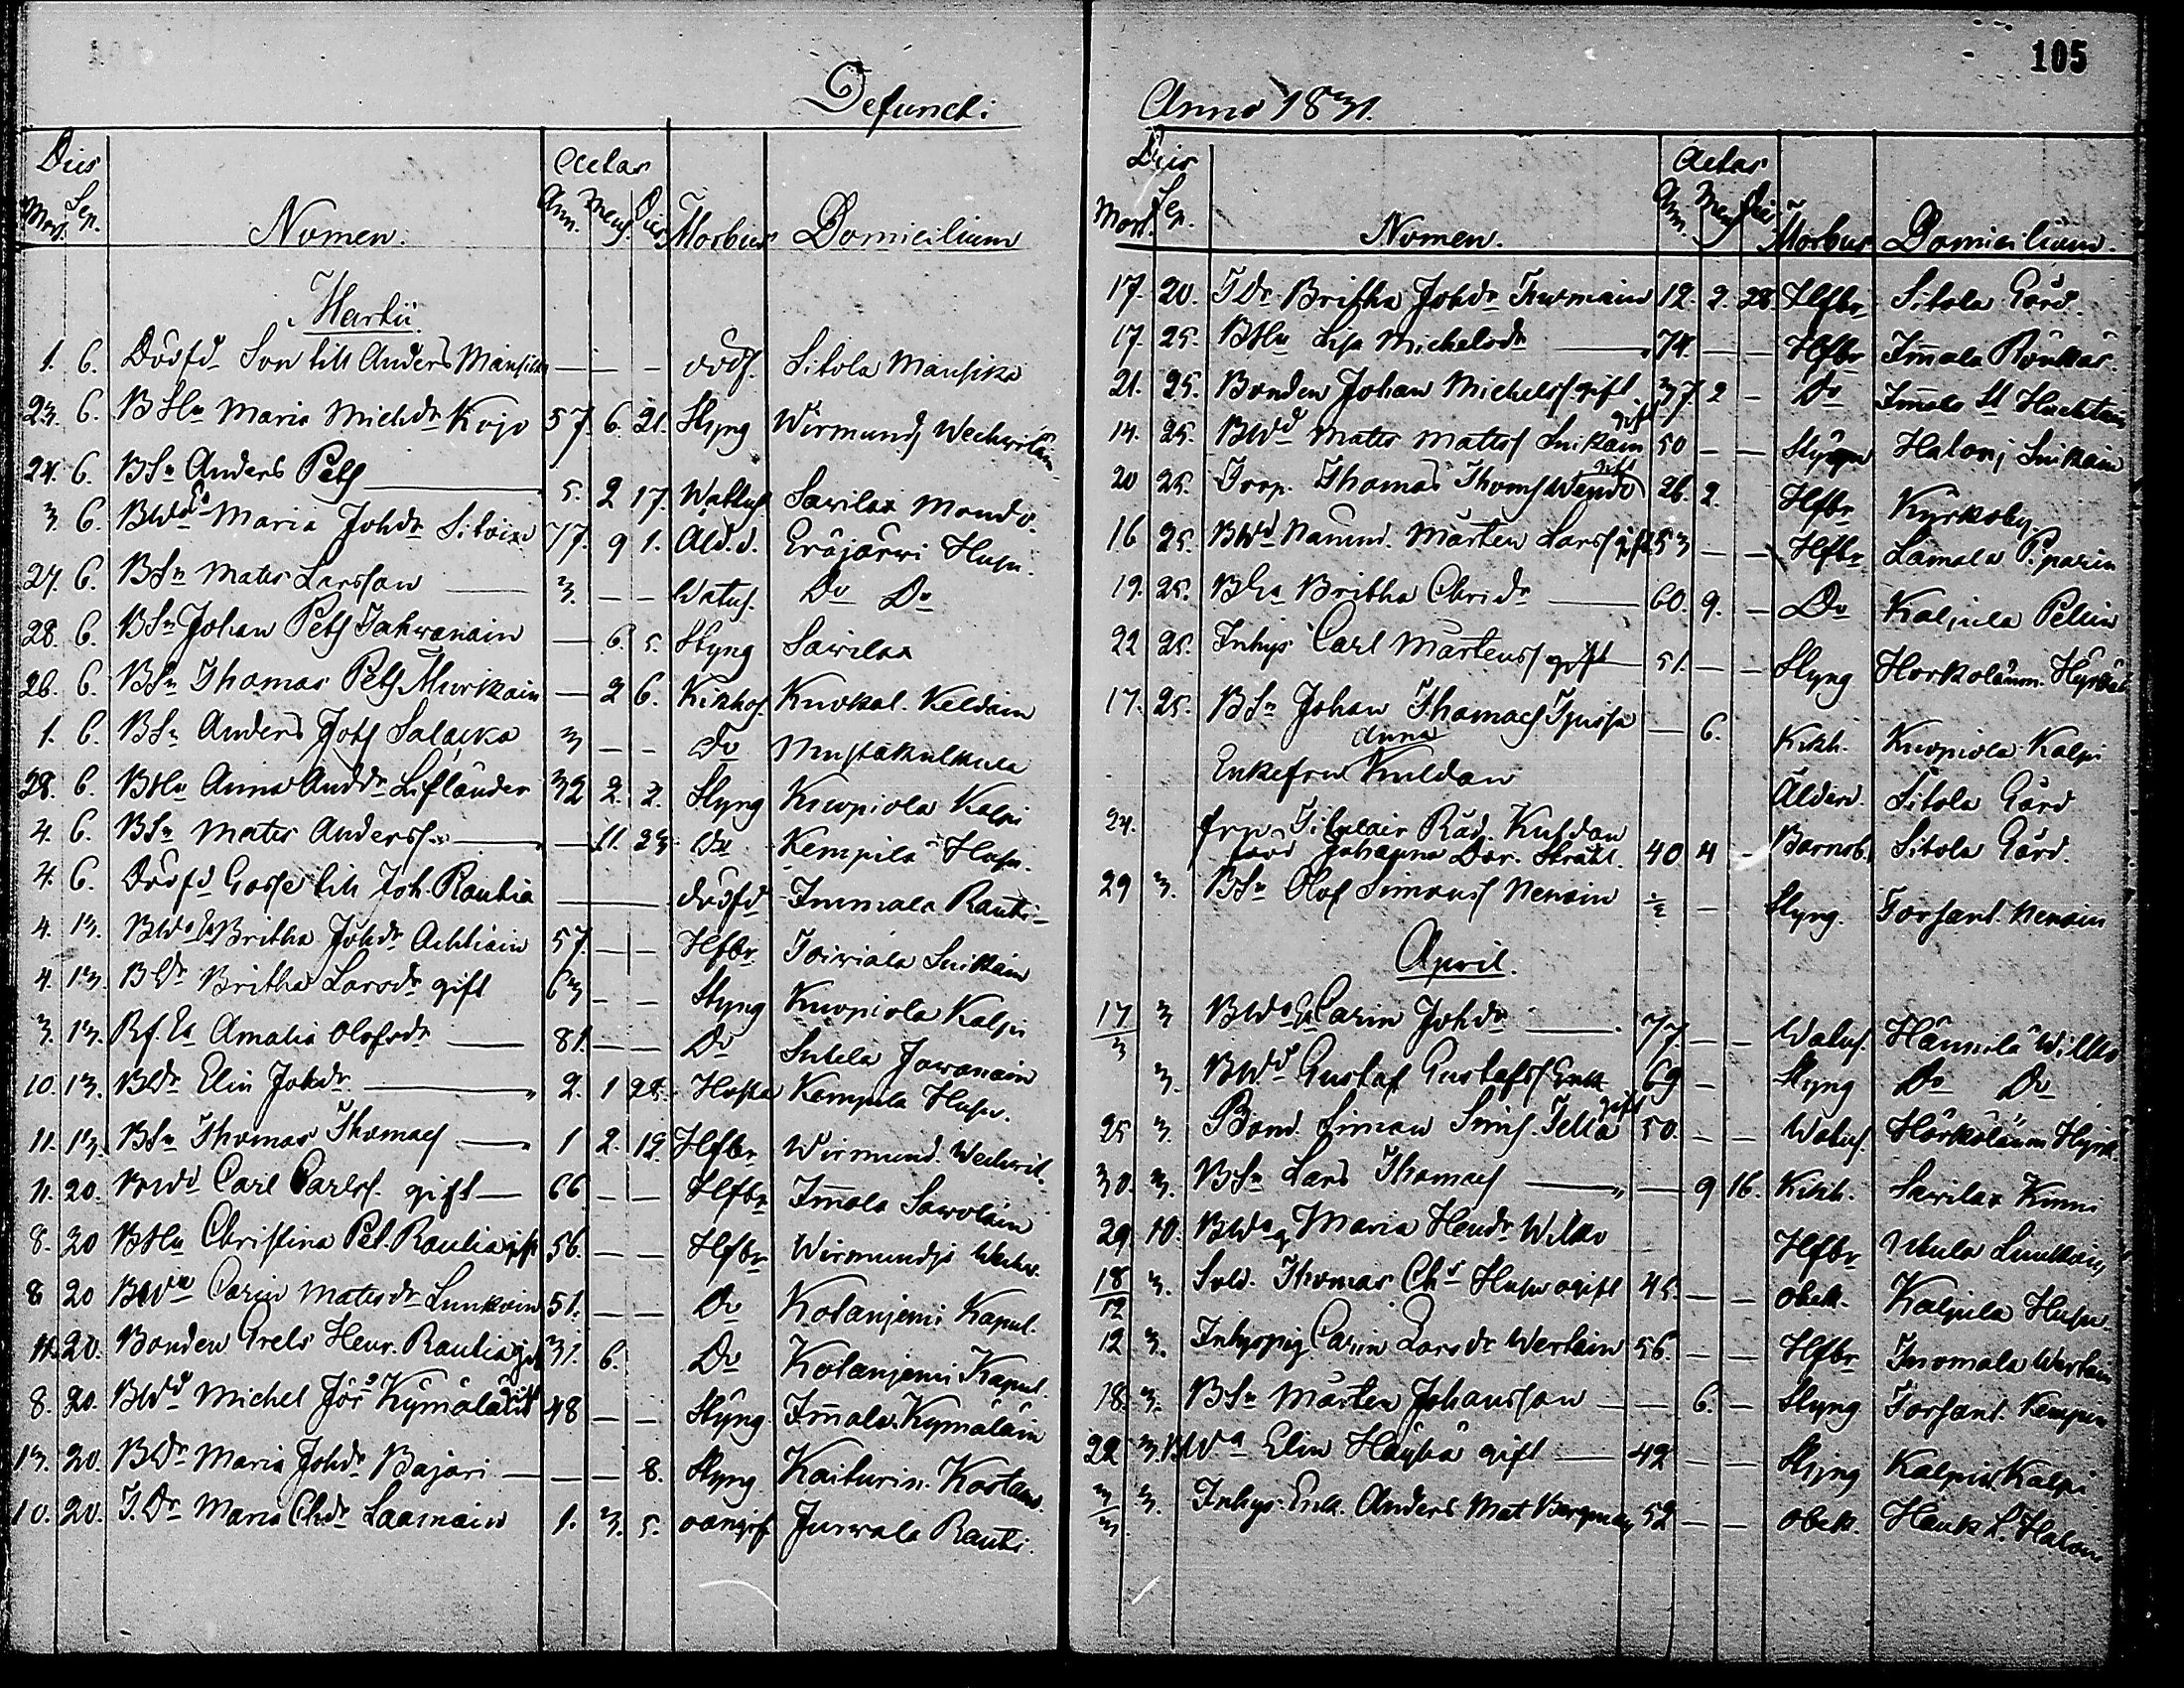 105
Defuncti
Anno 1831.
Dies Aetas
Mort. Sep. Nomen. Ann. Mens. Dies Morbus Domicilium
Martii
1. 6. Dödfd Son till Anders Mansikka — — — dödf. Sitola Mansikka
23. 6. BHu Maria Michdr Kojo 57. 6. 21. Styng Wirmundj
24. 6. BSn Anders Pets 5. 2 17. Wattus. Sawilax Mondo.
3. 6. Maria Johdr 77. 9 1. Ald.d. Eräjärwi Husu.
27. 6. BSn Mats Larsson 3. — — Watus. Do Do
28. 6. BSn Johan Pets Tahwanain — 6. 5. Styng Sawilax
26. 6. BSn Thomas Pets Murkain — 2 6. Kikhos. Kuokal. Keldain
1. 6. BSn Anders Salacka 3 — — Do Mustakulkula
28. 6. BHu Anna Anddr Lifländer 32 2. 2. Styng Kuopiola Kalpi
4. 6. BSn Mats Anderss. — 11. 23 Do Kempilä Husu.
4. 6. Dödfd Gosse till Joh. Rautia dödfd Immala Rauti
4. 13. Britha Johdr Achtiain 57. — — Hfbr Toiviala Suikain
4. 13. BDr Britha Larsdr gift 63 — — Styng Kuopiola Kalpi
3. 13. Rf. Ea Amalia Olofsdr 81. — — Do Sutela Jowonain
10. 13. BDr Elin Johdr 2. 1 Hosta Kempila Husu.
11. 13. BSn Thomas Thomas 1 2. 19. Hfbr Wirmund. Wechvil.
11. 20. BWd Carl Carlss. gift 66 — — Hfbr Im̄ala Sawolain
8. 20 BHu Christina Pet. Rautia gift 56. — — Hfbr Wirmundji
8 20 Carin Matsdr Lunkain 51. — — Do Kotanjemi Kapul.
11. 20. Bonden Grels Henr. Rautia gift 31. 6. Do Kotanjemi Kapul.
8. 20. BWd Michel Jörs Kymäläin 48 — — Styng. Im̄ala Kymäläin
13. 20. BDr Maria Johdr Bajari — — 8. Styng Kaiturin. Kostam.
10. 20. I.Dr Maria Chdr Laamain 1. 3. 5. oangif. Jurvala Rauti.
Dies Aetas
Mort. Sep. Nomen. Ann. Mens. Dies Morbus Domicilium.
17. 20. I Dr Britha Johdr Turmain 12. 2. 28. Hfbr Sitola Gård.
17. 25. BHu Lisa Michelsdr 74. — — Hfbr Im̄ala Rönkäs.
21. 25. Bonden Johan Michelss gift 37 2 — Do Im̄ala
14. 25. BWd Mats Matss Suikain gift 50 — — Styng Halonj Suikain
20 25. Torp. Thomas Thoms gift 26. 2. Hfbr Kyrkoby.
16 25. BWd Nämnd. Mårten Larss gift 53 — — Hfbr Lamala Piparin
19. 25. Britha Chrisdr 60. 9. — Do Kaljula Pellin
22 25. Inhys Carl Mårtenss gift 51. — — Styng
17. 25. BSn Johan Thomass — 6. Kikh. Kuopiola Kalpi
Enkefru Anna Kuldan Ålderd. Sitola Gård
24. fru Titulair Råd. Kuldan
född Johanna Dor. Stråhl. 40 4 — Barnsb. Sitola Gård.
29 3. BSn Olof Simonss Nenoin ½ — Styng. Torsant. Nenoin
April.
17/3 3 Carin Johdr 77 — — Watus. Hännilä Wilko
3. BWd Gustaf Gustafss Enk. 69 — Styng Do Do
25 3. Bond. Simon Sims. Tella gift 50. — — Watus.
30. 3. BSn Lars Thomass — 9 16. Kikh. Sawilax Kunni
29 10. Maria Hendr Wilko Hfbr Utula
18/12 3. Sold. Thomas Chs Husu ogift 45. — — obek. Kaljula Husu.
12 3. Inhyspig Carin Larsdr Wertain 56. — — Hfbr Inomala Wertain
18. 3. BSn Mårten Johansson — 6. — Styng Torsant. Kempin
22 3. Elin Häyhä gift 42 — — Styng Kalpin Kalpi
3/3 3. Inhys. Enk. Anders Mat Bergman 52 — — obek. Hauk L. Halon